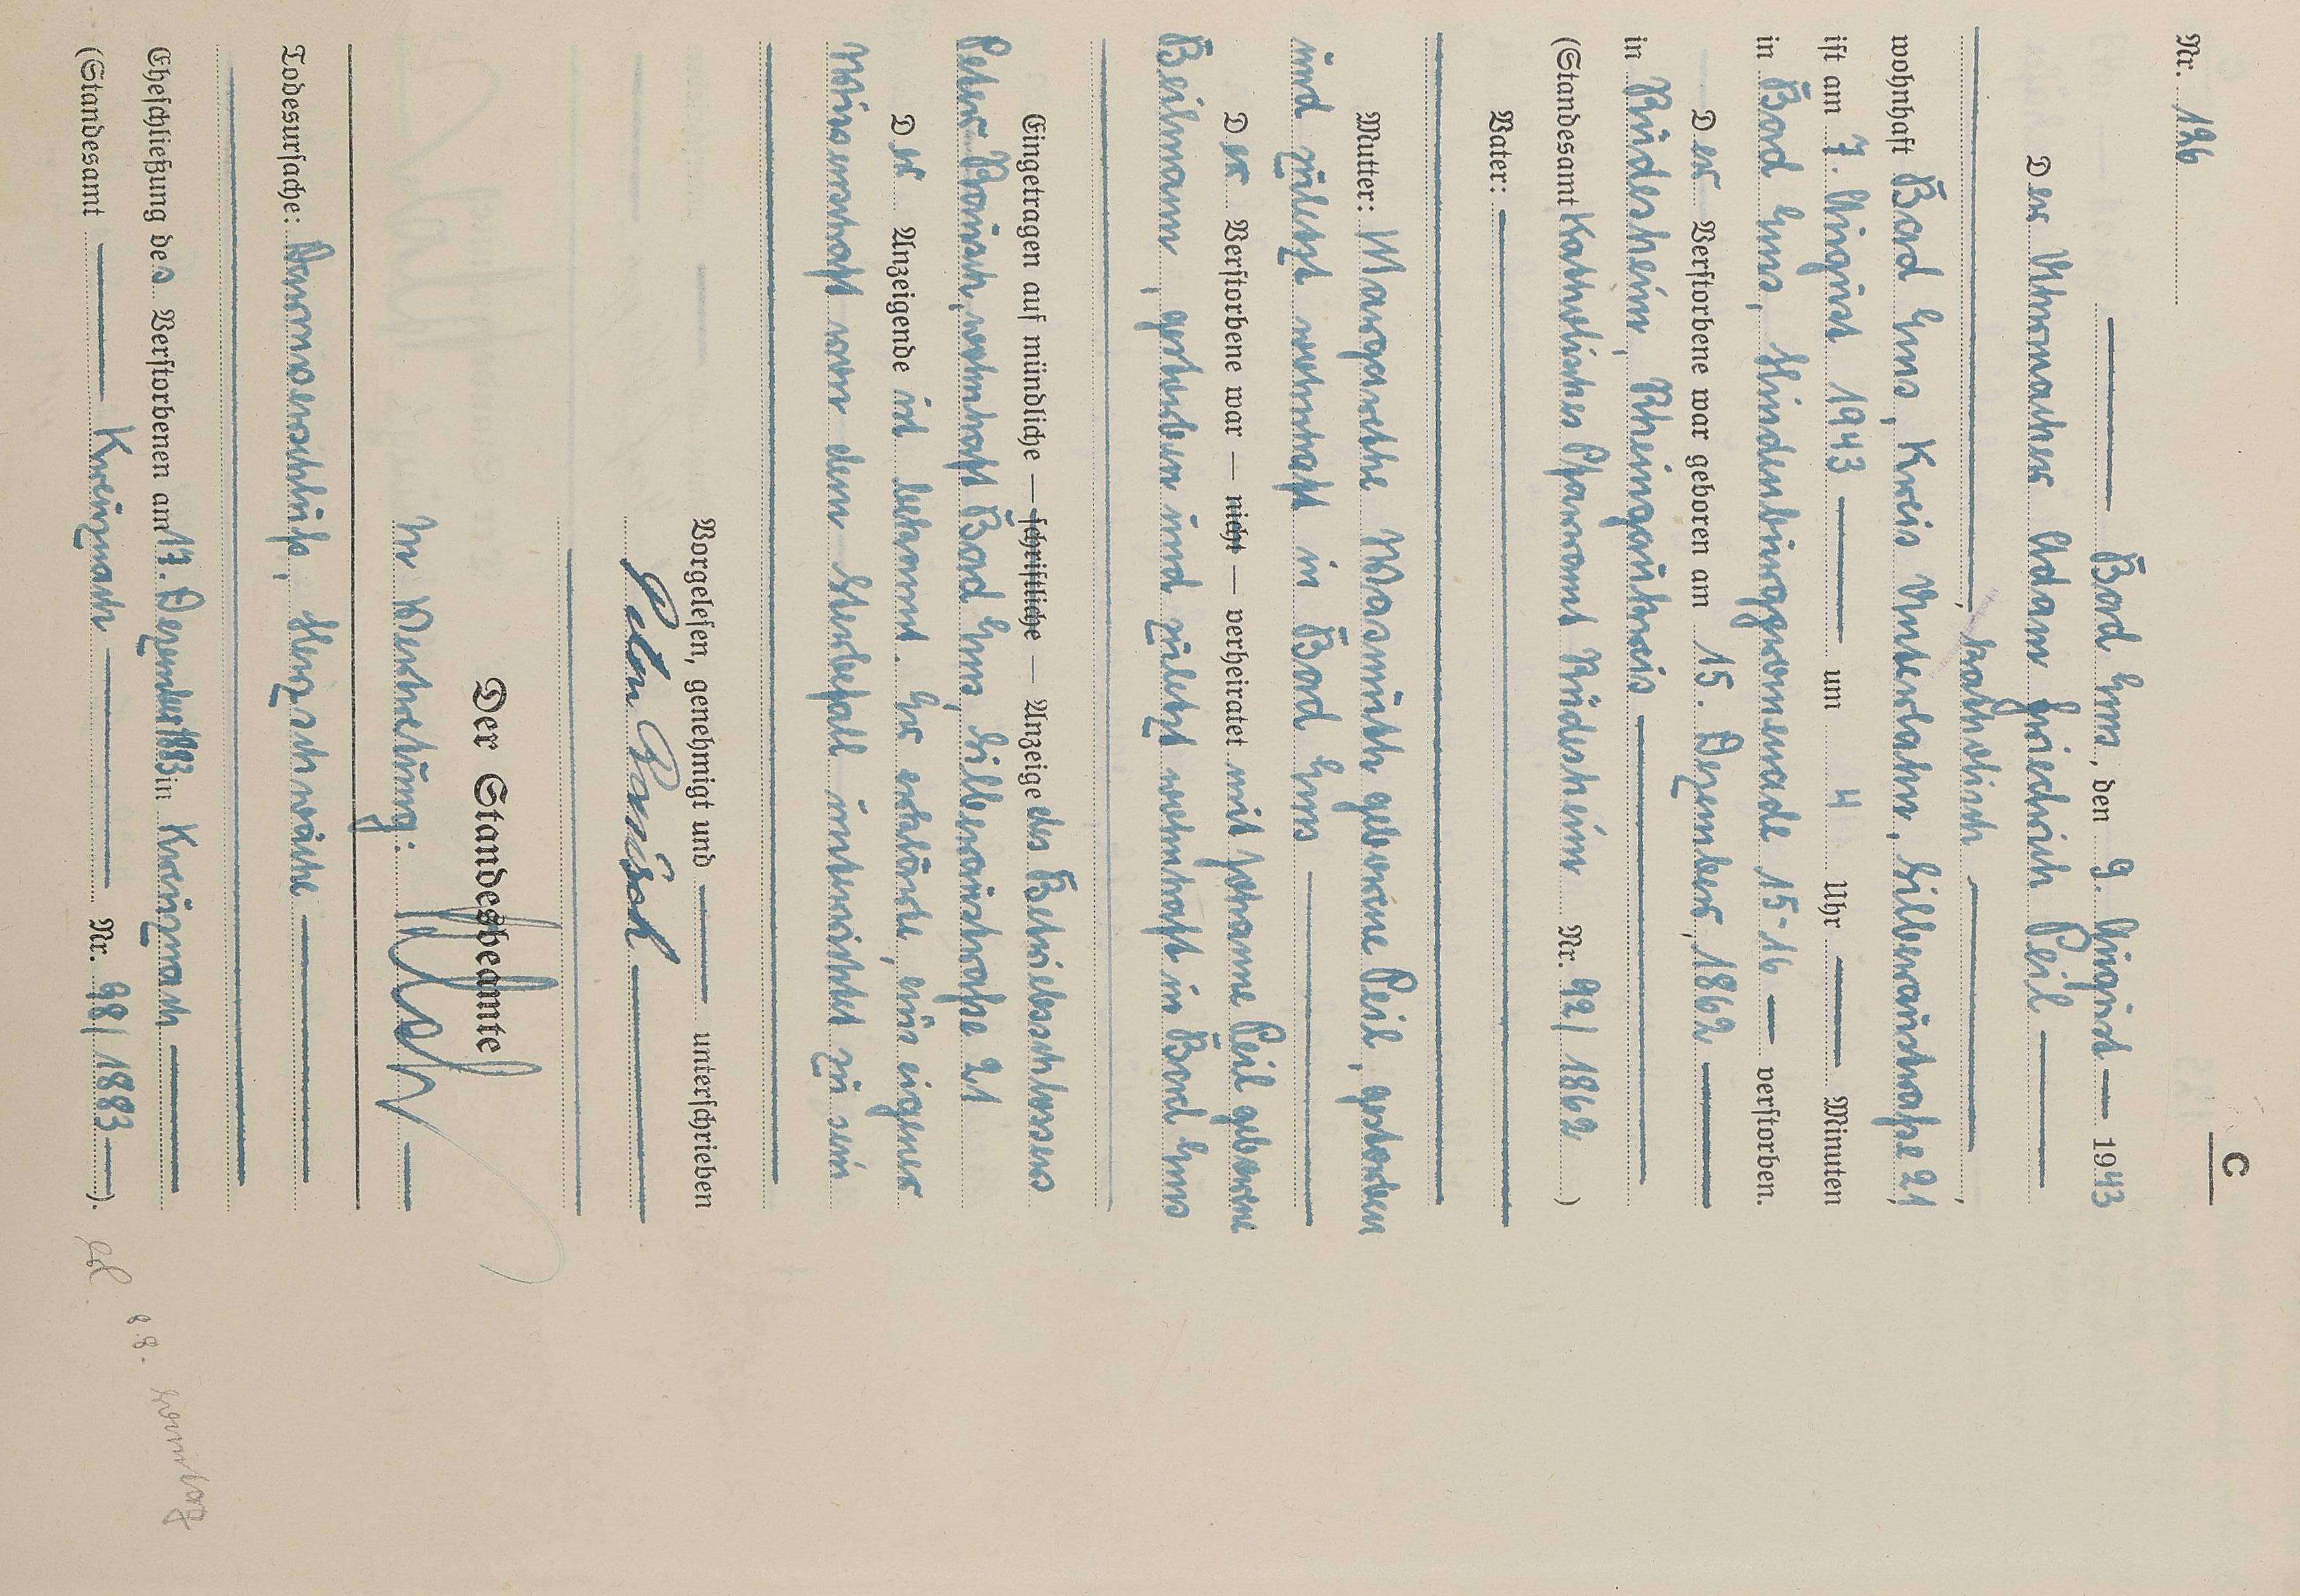 C
Nr. 126
Bad Ems, den 9. August 1943
Der Uhrmacher Adam Friedrich Peil
, katholisch ,
wohnhaft Bad Ems, Kreis Unterlahn, Silberaustraße 21,
ist am 7. August 1943 um 4 Uhr Minuten
in Bad Ems, Hindenburgpromenade 15-16 verstorben.
Der Verstorbene war geboren am 15. Dezember 1862
in Rüdesheim, Rheingaukreis
(Standesamt Katholisches Pfarramt Rüdesheim Nr. 92/1862 )
Vater:
Mutter: Margarethe Wasmuth geborene Peil, gestorben
und zuletzt wohnhaft in Bad Ems
Der Verstorbene war — nicht — verheiratet mit Johanna Peil geborene
Beilmann, gestorben und zuletzt wohnhaft in Bad Ems
Eingetragen auf mündliche — schriftliche — Anzeige des Betriebsschlossers
Peter Bauisch, wohnhaft Bad Ems, Silberaustraße 21
Der Anzeigende ist bekannt. Er erklärte, aus eigener
Wissenschaft von dem Sterbefall unterrichtet zu sein
Vorgelesen, genehmigt und unterschrieben
Peter Bauisch
Der Standesbeamte
In Vertretung:
Todesursache: Darmverschluß, Herzschwäche
Eheschließung des Verstorbenen am 17. Dezember 1883 in Kreuznach
(Standesamt Kreuznach Nr. 98/1883 ).